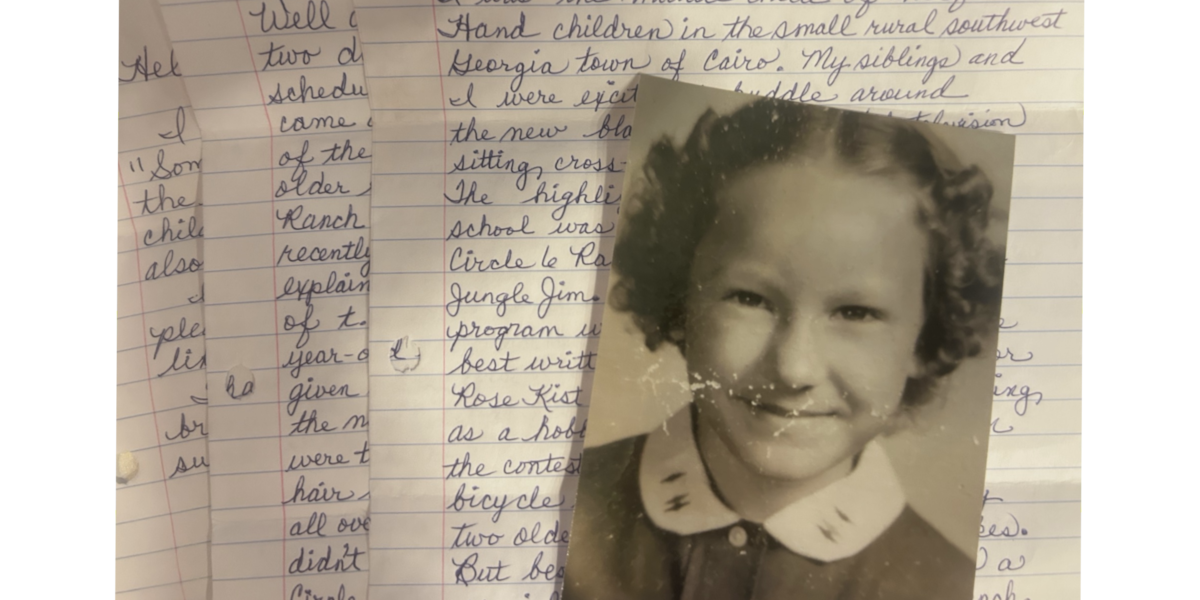 Hel
I
"Son
the
chil
also
ple
li
br
su
Well
two d
schedu
came
of the
older
Ranch
recently
explain
of t.
year-o
ha
given
the n
were t
hair
all ove
didn't
Circle
Hand children in the small rural southwest
Georgia town of Cairo. My siblings and
I were excit huddle around
the new bla television
sitting, cross-
The highli
school was
Circle 6 Ra
Jungle Jim.
program w
best writt
Rose Kist ing,
as a hobb
the contest
bicycle
two olde es.
But bec a